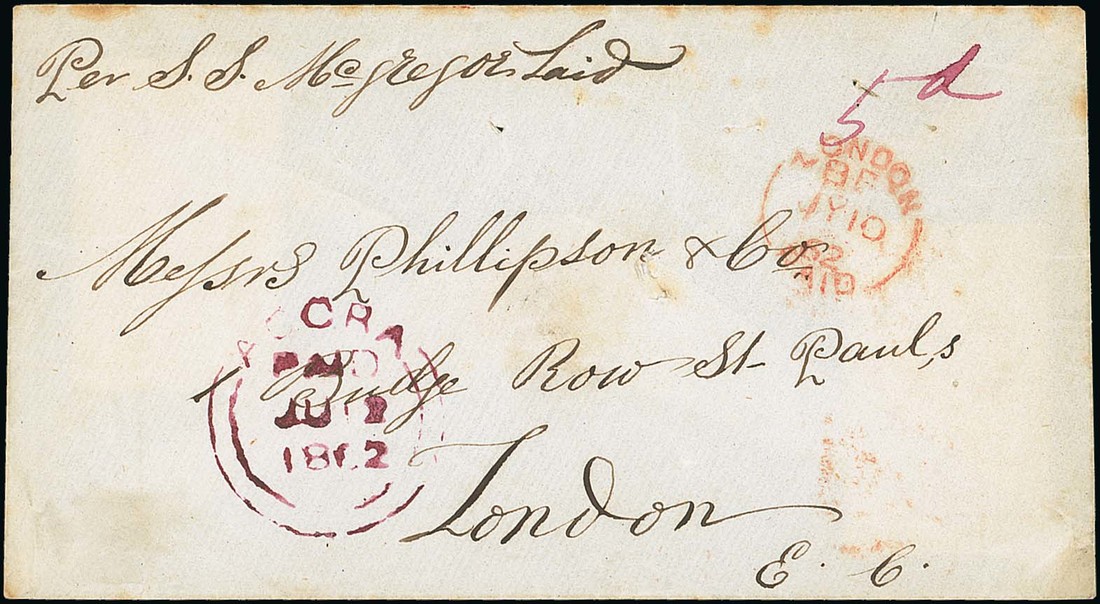 Per S. S. McGregor Laird
5d
LONDON
BF
JY 10
62
PAID
Messrs Phillipson & Co
ACCRA
PAID
1862
1 Budge Row St. Pauls
London
E. C.